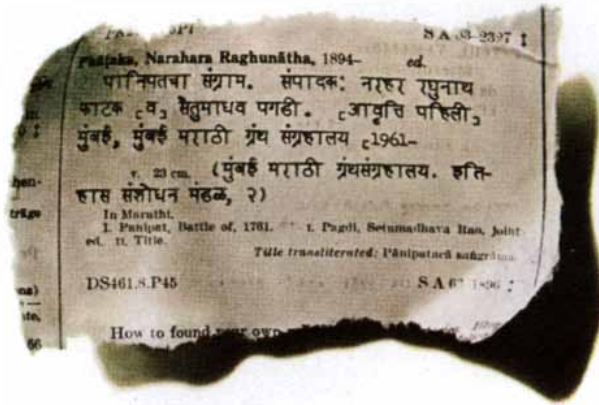 S A 63-2397 ‡
Phāṭaka, Narahara Raghunātha, 1894- ed.
पानिपतचा संग्राम. संपादक: नरहर रघुनाथ
फाटक ⊂व⊃ सेतुमाधव पगडी. ⊂आवृत्ति पहिली⊃
मुंबई, मुंबई मराठी ग्रंथ संग्रहालय ⊂1961-
v. 23 cm. (मुंबई मराठी ग्रंथसंग्रहालय. इति-
हास संशोधन मंडळ, २)
In Marathi.
1. Panipat, Battle of, 1761. I. Pagdi, Setumadhava Rao, joint
ed. II. Title.
Title transliterated: Pānipatacā saṅgrāma.
DS461.8.P45 S A
How to found your own
träge
66